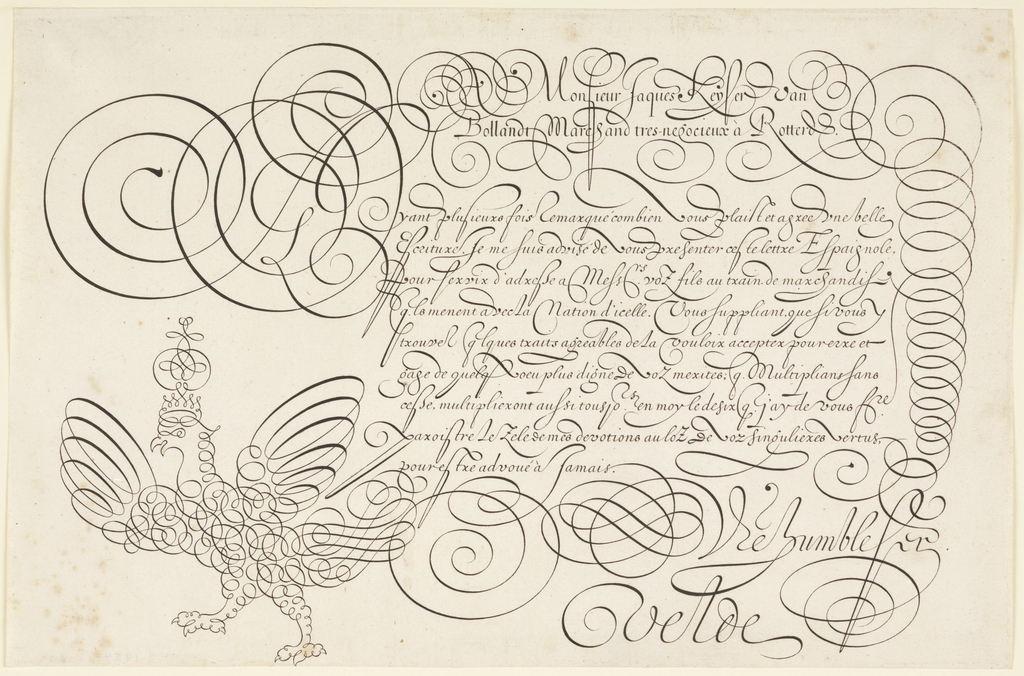 A Monsieur Jaques Keyser Van
Bollandt Marchand tres-negocieux à Rotterd.
Ayant plusieurs fois remarqué combien vous plaist et agree une belle
Escriture. Je me suis advisé de vous presenter ceste lettre Espaignole.
pour servir d'adresse a Mess.rs voz fils au train de marchandise
q'ls menent avec la Nation d'icelle. Vous suppliant, que si vous y
trouvez q'lques traits agreables de la vouloir accepter pour erre et
gage de quelq. voeu plus digne de voz merites; q. Multiplians sans
cesse, multiplieront aussi tousj.rs en moy le desir q. j'ay de vous fre
Paroistre le Zele de mes devotions au loz de voz singulieres vertus,
pour estre advoué à Jamais.
Vre humble ser
Velde